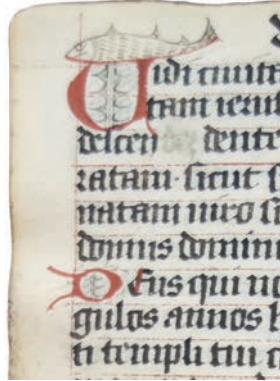 Uidi ciuita
tam ierus
descen dente
ratam · sicut s
natam uiro s
domus domin
Deus qui no
gulos annos h
ti templi tui c